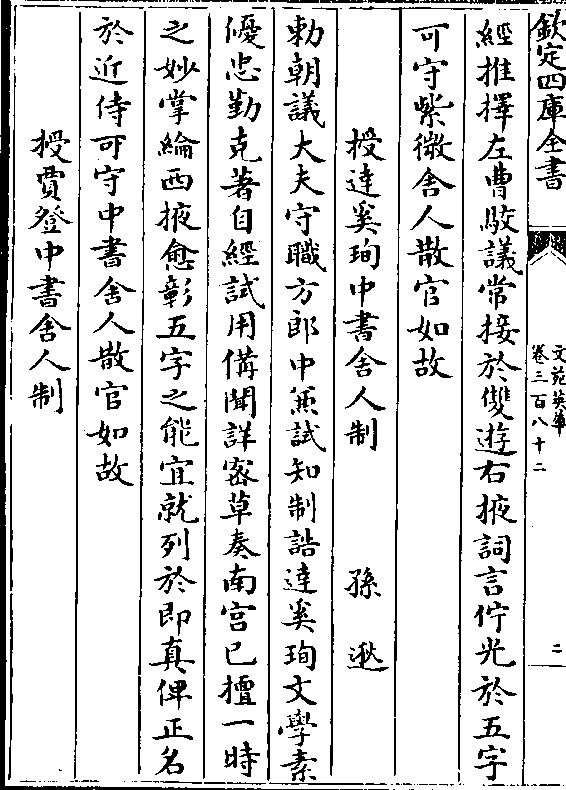 欽定四庫全書
文苑英華
卷三百八十二
二
經推擇左曹駮議常接於雙遊右掖詞言佇光於五字
可守紫微舍人散官如故
授達奚珣中書舍人制 孫逖
勅朝議大夫守職方郎中兼試知制誥達奚珣文學素
優忠勤克著自經試用備聞詳密草奏南宮已擅一時
之妙掌綸西掖愈彰五字之能宜就列於即真俾正名
於近侍可守中書舍人散官如故
授賈登中書舍人制